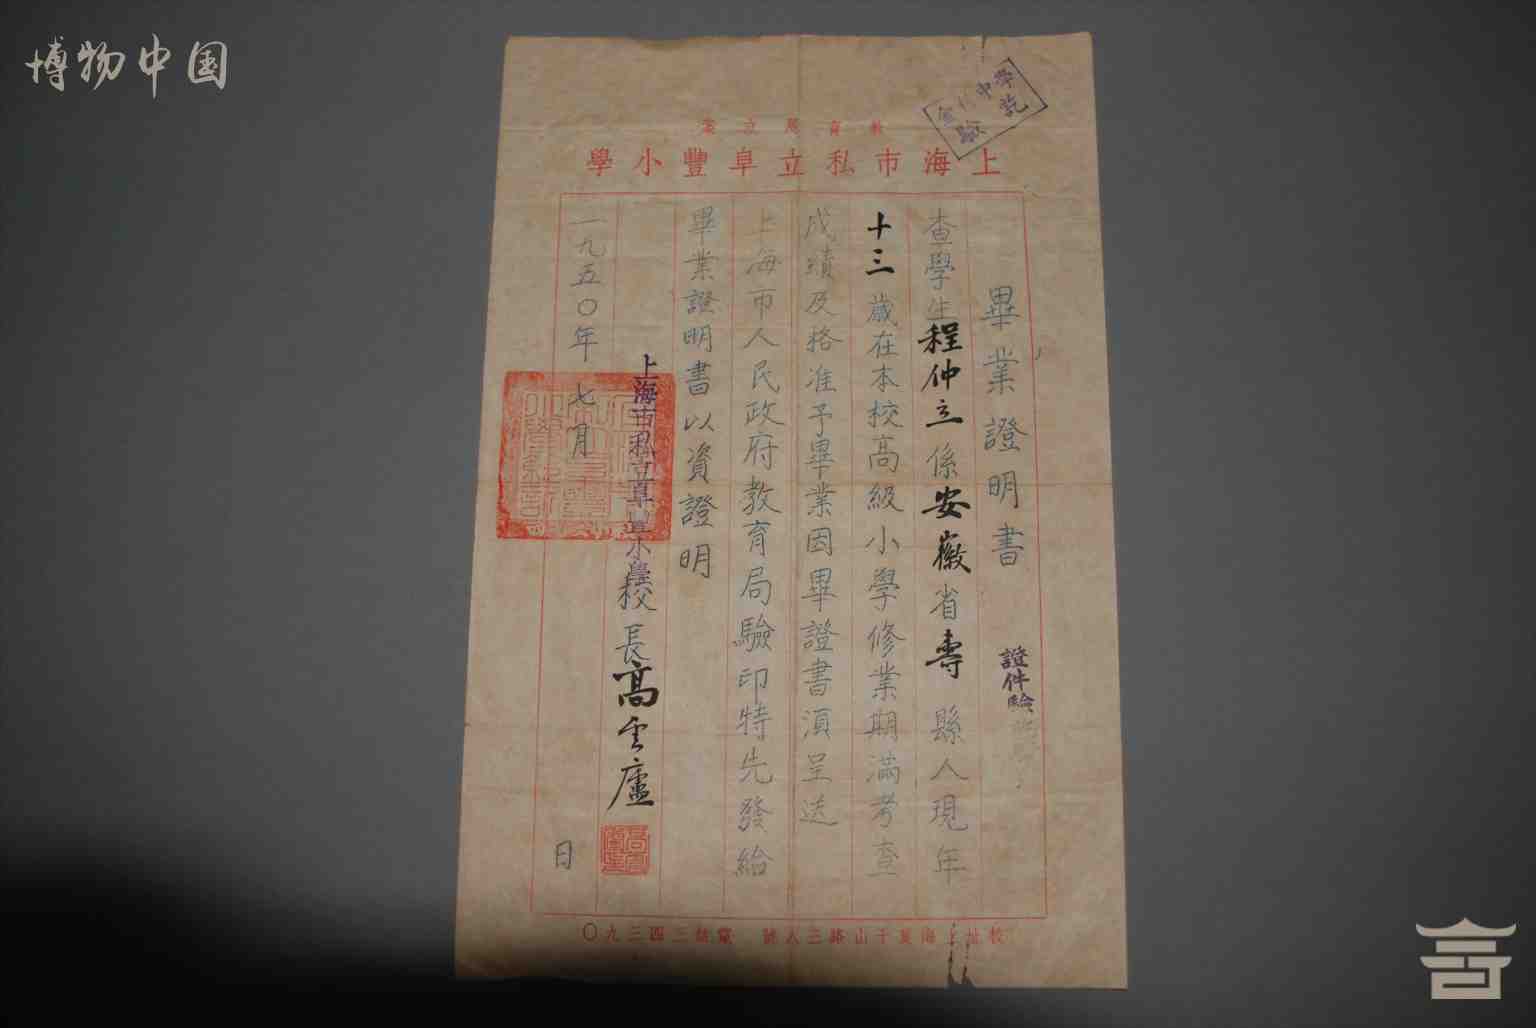 博物中国
教育局立案
上海市私立阜豐小學
畢業證明書
證件驗訖
查學生程仲立係安徽省壽縣人現年
十三歲在本校高級小學修業期滿考查
成績及格准予畢業因畢證書須呈送
上海市人民政府教育局驗印特先發給
畢業證明書以資證明
上海市私立阜豐小學校長高雲廬
一九五〇年七月 日
校址上海莫干山路三八號 電話三四三九〇